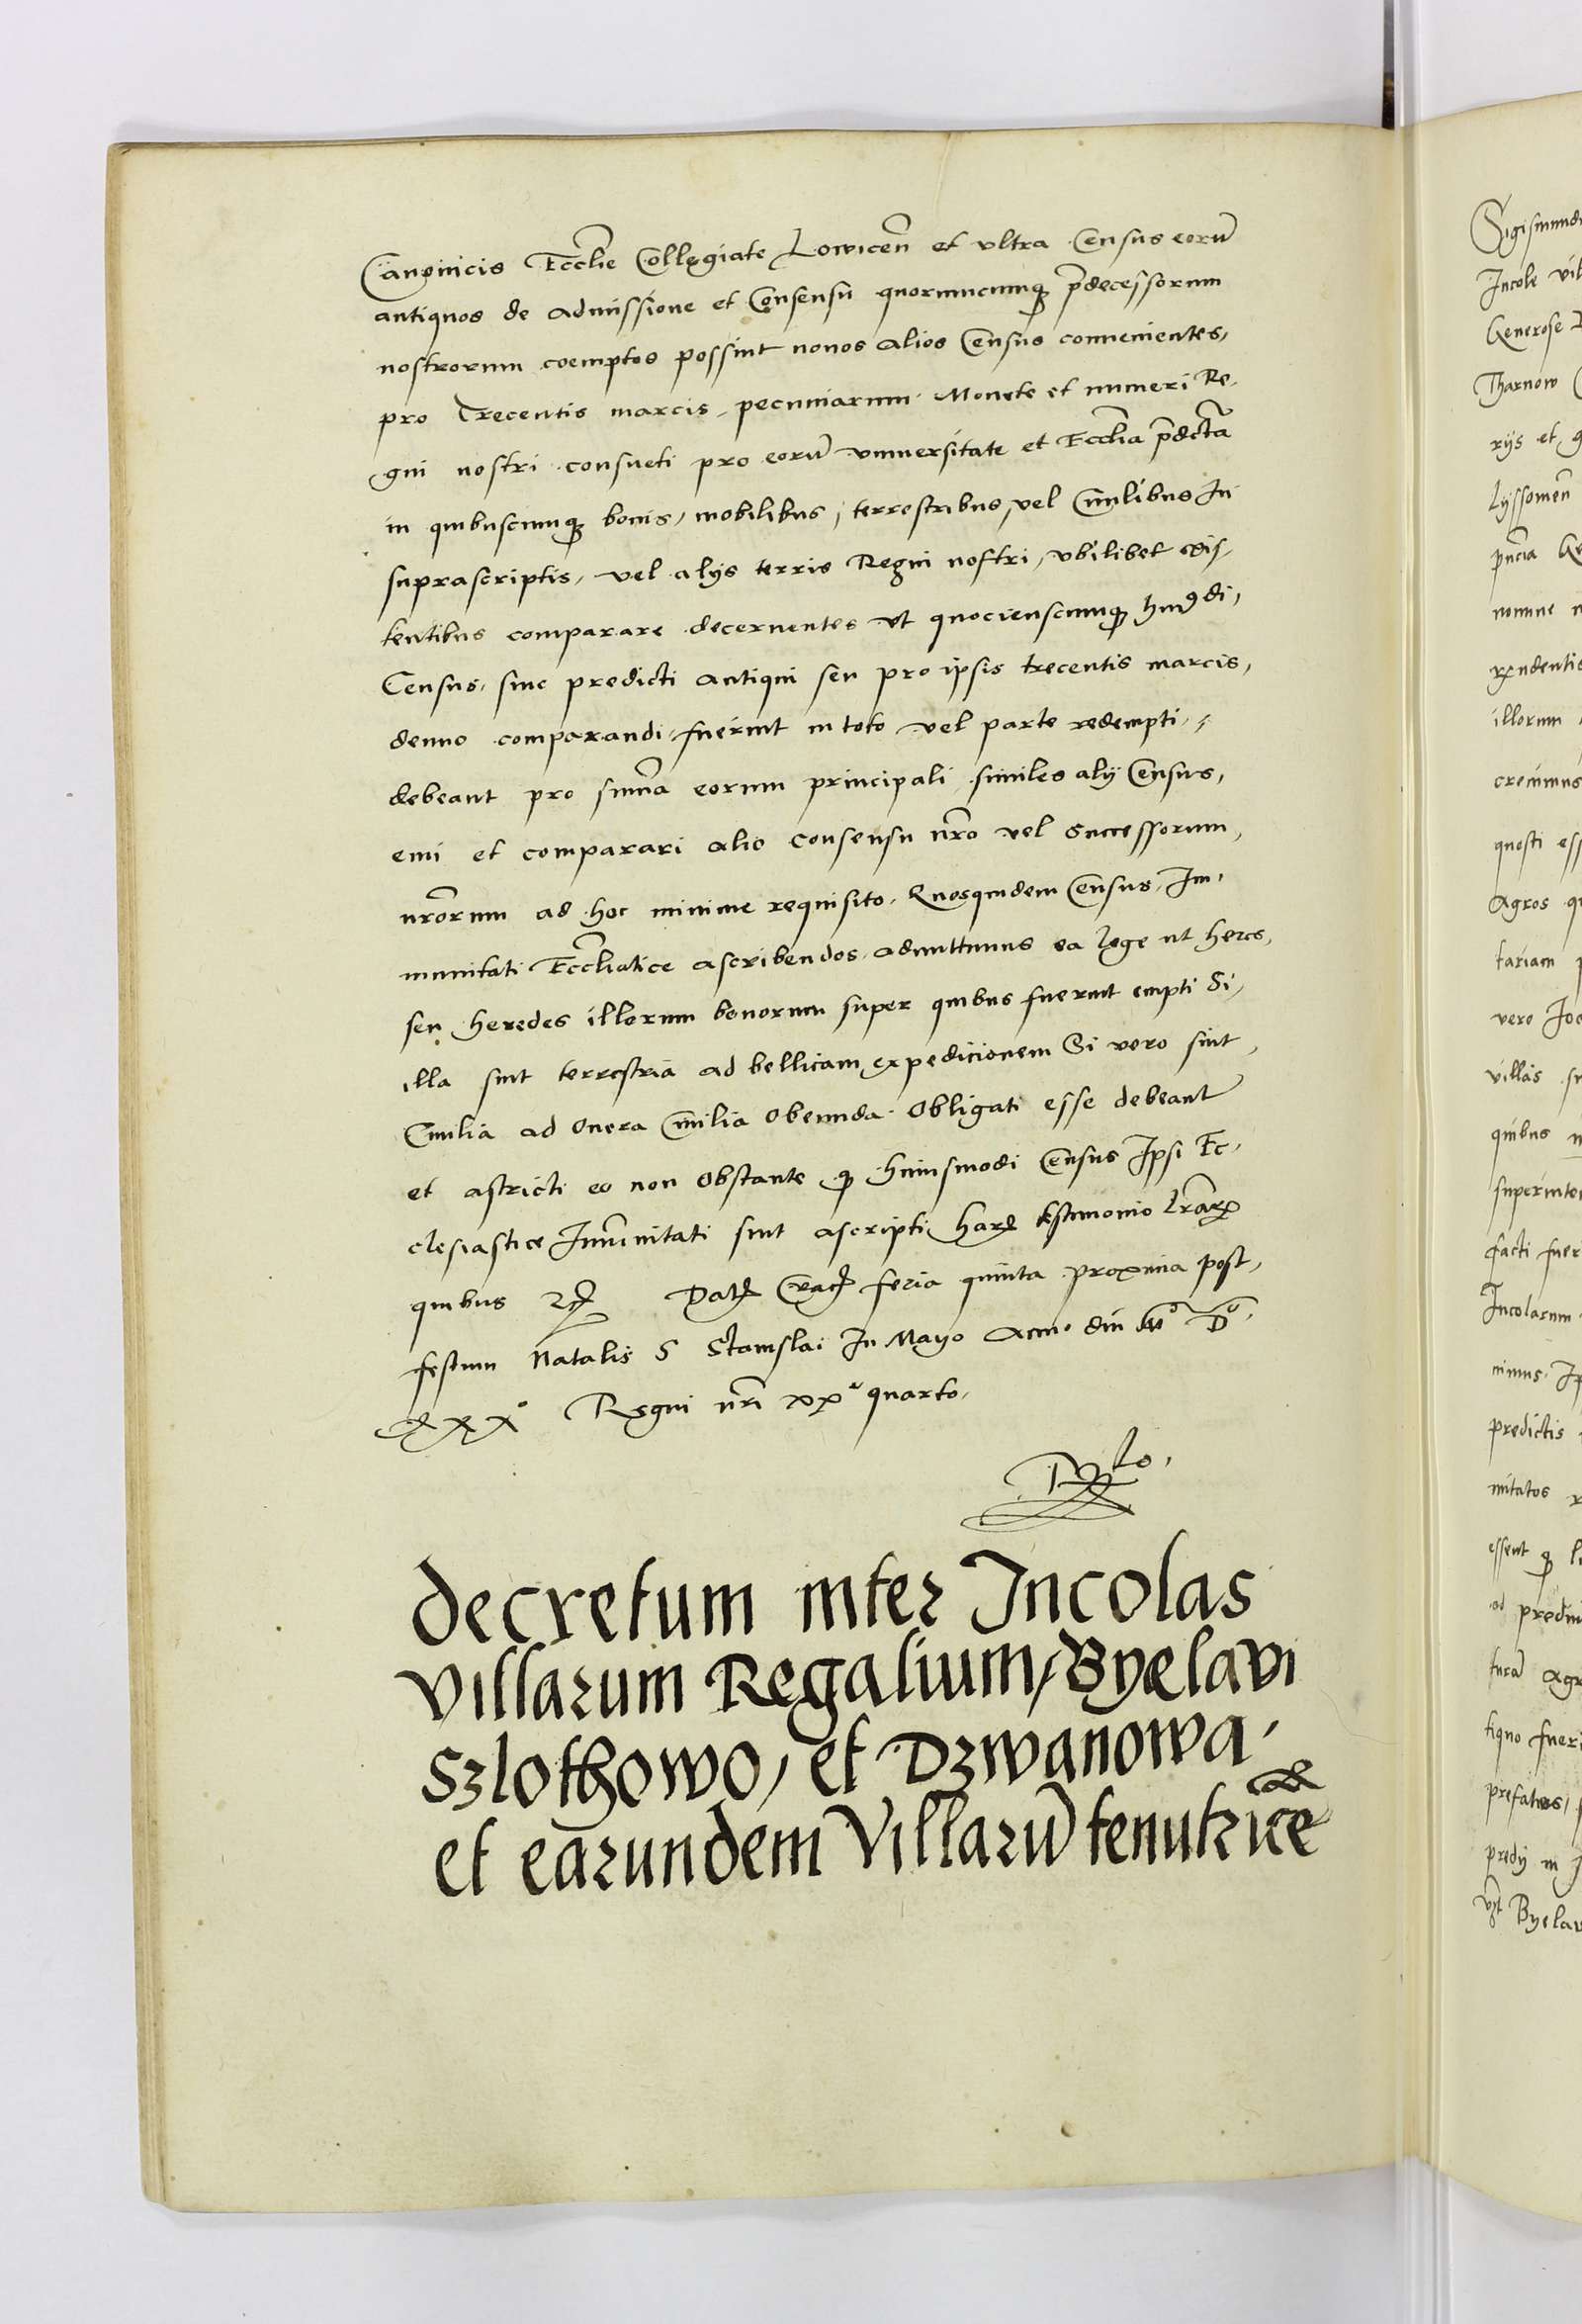 Canonicis Eccl̃ie Collegiate Lowiceñ et vltra Census eorũ
antiquos de admissione et Consensu quorumcumqꝫ p̃decessorum
nostrorum coemptos possint nouos alios Census conuenientes,
pro Trecentis marcis, pecuniarum Monete et numeri Re-
gni nostri consueti pro eorũ vniuersitate et Eccl̃ia p̃dcta
in quibuscumqꝫ bonis, mobilibus, terrestribus, vel Ciuilibus In
suprascriptis, vel alys terris Regni nostri, vbilibet
tentibus comparare decernentes vt quocienscumqꝫ huiꝰdi,
Census, siue predicti antiqui seu pro ipsis trecentis marcis,
denuo comparandi, fuerint in toto vel parte redempti,
debeant pro sum̃a eorum principali similes alij Census,
emi et comparari alio consensu nr̃o vel Successorum,
nrõrum ad hoc minime requisito. Quosquidem Census, Im-
munitati Eccl̃iatice ascribendos admittimus ea lege ut heres,
seu heredes illorum bonorum super quibus fuerint empti Si,
illa sint terrestria ad bellicam expedicionem Si vero sint,
Ciuilia ad Onera Ciuilia Obeunda Obligati esse debeant
et astricti eo non Obstante qꝫ huiusmodi Census Ipsi Ec-
clesiastice Im̃unitati sint ascripti, Harꝫ testimonio Lr̃arꝫ
quibus ꝛcꝫ Datꝫ Cracꝫ feria quinta proxima post,
festum Natalis S Stanislai In Mayo Anno dñi Mº Dº
XXXº Regni nr̃i xxº quarto,
decretum inter Incolas
Villarum Regalium, Byelavi
Szlothowo, et Dzwanowa,
et earundem Villarũ tenutrice
Sigismund
Incole vil
Generose
Tharnow
rijs et g
Lyssomeñ
pñcia
nomine
illorum
quosti ess
Agros q
tariam
vero Jo
villas
quibus
superinte
facti fuer
Incolarum
nimus, Ip
predictis
essent qꝫ
Agr
tiquo fueri
prefatas,
predij in
Byelaw